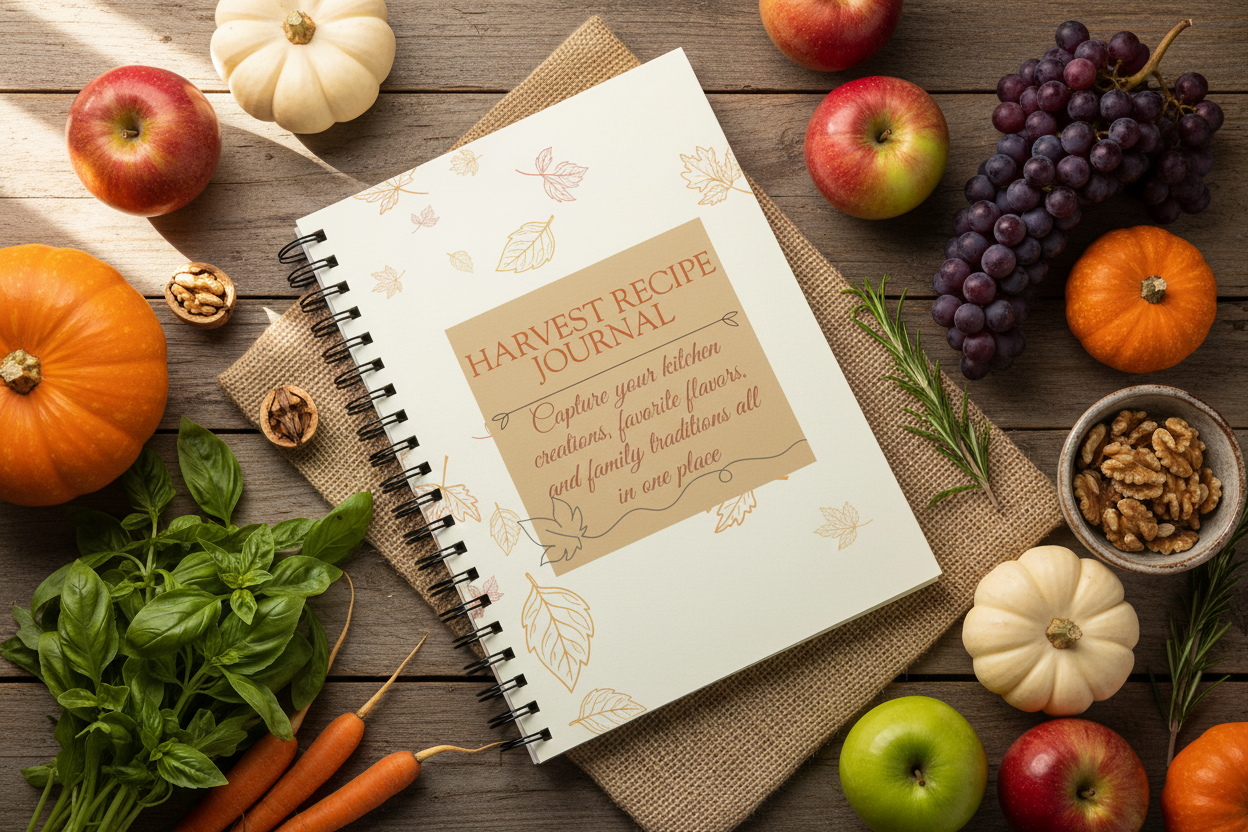 HARVEST RECIPE
JOURNAL
Capture your kitchen
creations, favorite flavors,
and family traditions all
in one place